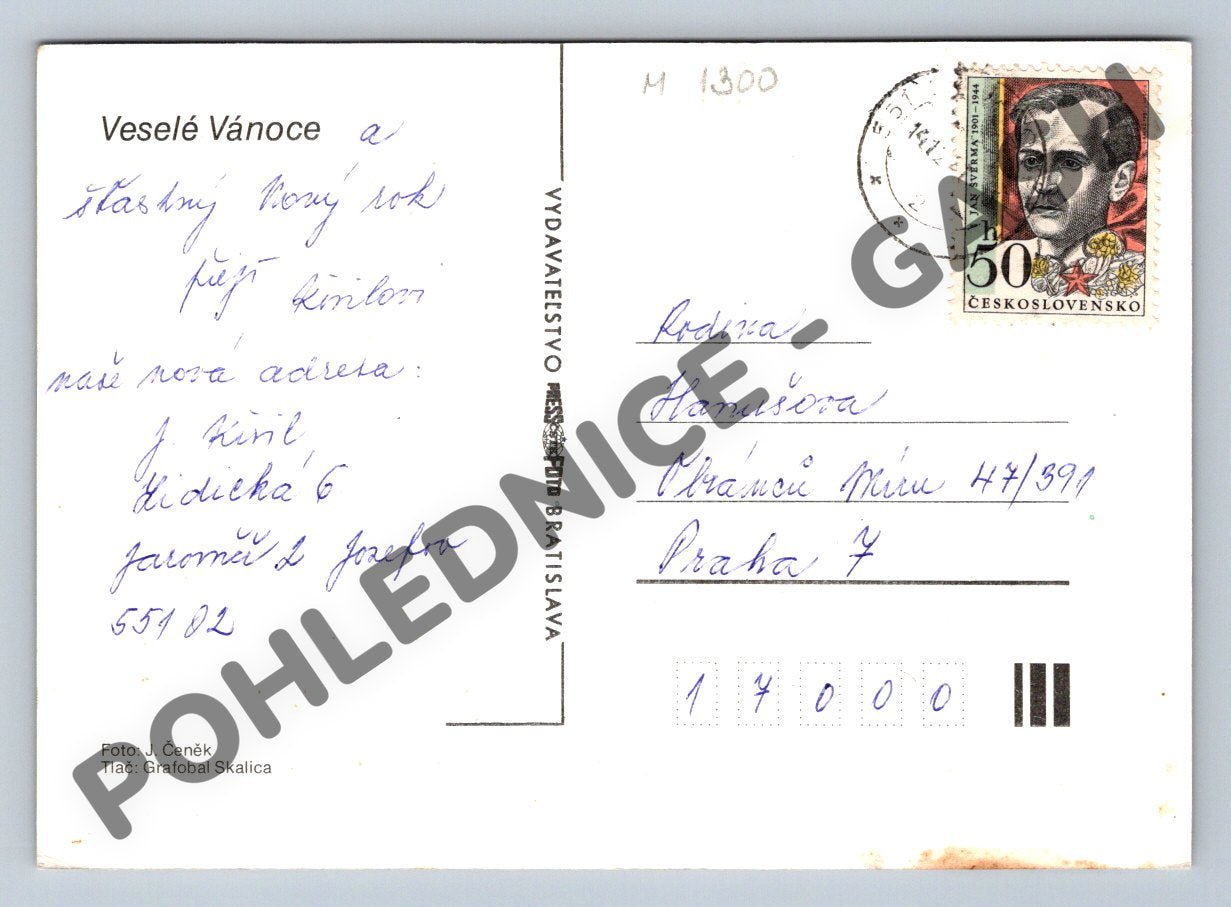 Veselé Vánoce a
šťastný Nový rok
přejí Kirilovi
naše nová adresa:
J. Kiril
Lidická 6
Jaroměř 2 Josefov
551 02
Foto: J. Čeněk
Tlač: Grafobal Skalica
VYDAVATEĽSTVO PRESSFOTO BRATISLAVA
M 1300
JAN ŠVERMA 1901–1944
50 h
ČESKOSLOVENSKO
Rodina
Hanušova
Obránců Míru 47/391
Praha 7
1 7 0 0 0
POHLEDNICE -